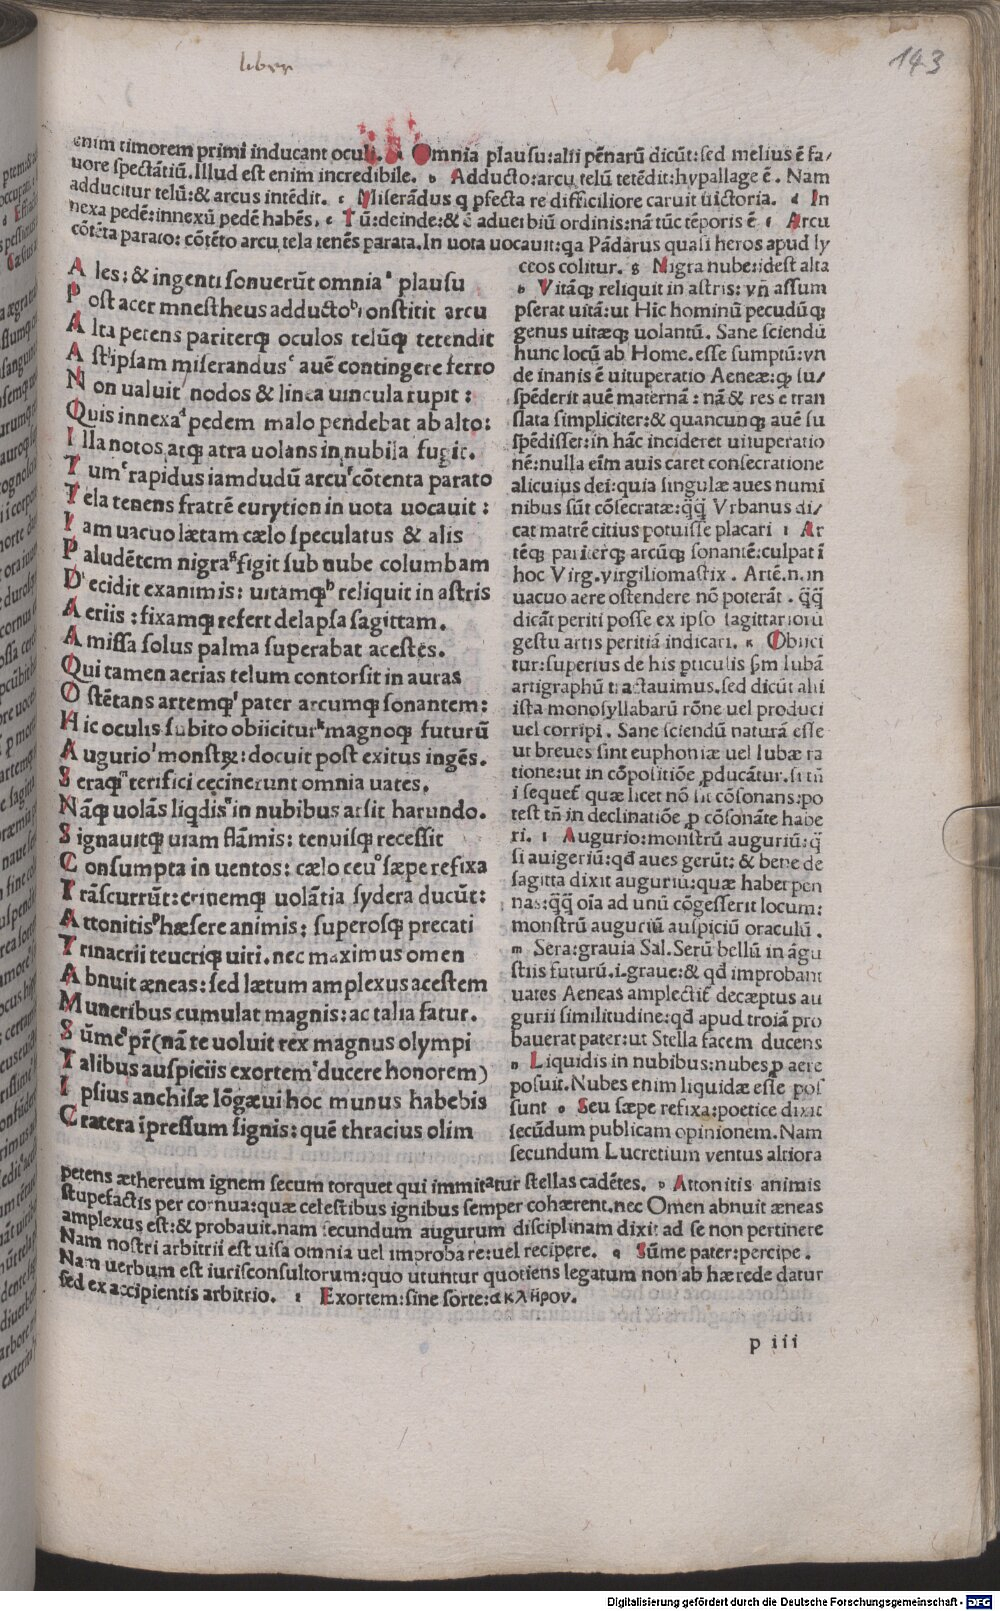 liber
143
enim timorem primi inducant oculi. a Omnia plausu:alii pēnarū dicūt:sed melius ē fa/
uore spectātiū.Illud est enim incredibile. b Adducto:arcu telū tetēdit:hypallage ē. Nam
adducitur telū:& arcus intēdit. c Miserādus q pfecta re difficiliore caruit uictoria. d In
nexa pedē:innexū pedē habēs. e Tū:deinde:& ē aduerbiū ordinis:nā tūc tēporis ē f Arcu
cōtēta parato: cōtēto arcu tela tenēs parata.In uota uocauit:qa Pādarus quasi heros apud ly
A les: & ingenti sonuerūt omniaᵃ plausu
P ost acer mnestheus adductoᵇ constitit arcu
A lta petens pariterq; oculos telūq; tetendit
A st ipsam miserandusᶜ auē contingere ferro
N on ualuit nodos & linea uincula rupit:
Q uis innexaᵈ pedem malo pendebat ab alto:
I lla notos atq; atra uolans in nubila fugit.
T umᵉ rapidus iamdudū arcuᶠ cōtenta parato
T ela tenens fratrē eurytion in uota uocauit:
I am uacuo lætam cælo speculatus & alis
P laudētem nigraᵍ figit sub nube columbam
D ecidit exanimis: uitamq;ʰ reliquit in astris
A eriis: fixamq; refert delapsa sagittam.
A missa solus palma superabat acestes.
Q ui tamen aerias telum contorsit in auras
O stētans artemq;ⁱ pater arcumq; sonantem:
H ic oculis subito obiiciturᵏ magnoq; futurū
A ugurioˡ monstrꝝ: docuit post exitus ingēs.
S eraqᵐ terifici cecinerunt omnia uates.
N āq; uolās liqdisⁿ in nubibus arsit harundo.
S ignauitq; uiam flāmis: tenuisq; recessit
C onsumpta in uentos: cælo ceuᵒ sæpe refixa
T rāscurrūt: crinemq; uolātia sydera ducūt:
A ttonitisᵖ hæsere animis: superosq; precati
T rinacrii teucriq; uiri. nec maximus omen
A bnuit æneas: sed lætum amplexus acestem
M uneribus cumulat magnis: ac talia fatur.
S ūmeᑫ pr̄(nā te uoluit rex magnus olympi
T alibus auspiciis exortemʳ ducere honorem)
I psius anchisæ lōgæui hoc munus habebis
C ratera īpressum signis: quē thracius olim
ceos colitur. g Nigra nube:idest alta
h Vitāq; reliquit in astris: vn̄ assum
pserat uitā:ut Hic hominū pecudūq;
genus uitæq; uolantū. Sane sciendū
hunc locū ab Home.esse sumptū:vn
de inanis ē uituperatio Aeneæ:q; su/
spēderit auē maternā: nā & res e tran
slata simpliciter:& quancunq; auē su
spēdisset:in hāc incideret uituperatio
nē:nulla eīm auis caret consecratione
alicuius dei:quia singulæ aues numi
nibus sūt cōsecratæ:q̄q̄ Vrbanus di/
cat matrē citius potuisse placari i Ar
tēq; pariterq; arcūq; sonantē:culpat ī
hoc Virg.virgiliomastix. Artē.n.in
uacuo aere ostendere nō poterāt. q̄q̄
dicāt periti posse ex ipso sagittarioru
gestu artis peritiā indicari. k Obiici
tur:superius de his pticulis ſm Iubā
artigraphū tractauimus.sed dicūt alii
ista monosyllabarū rōne uel produci
uel corripi. Sane sciendū naturā esse
ut breues sint euphoniæ uel Iubæ ra
tione:ut in cōpositiōe pducātur.si tn̄
i sequet̄ quæ licet nō sit cōsonans:po
test tn̄ in declinatiōe p cōsonāte habe
ri. l Augurio:monstrū auguriū:q̄
si auigeriū:qđ aues gerūt: & bene de
sagitta dixit auguriū:quæ habet pen
nas:q̄q̄ oīa ad unū cōgesserit locum:
monstrū auguriū auspiciū oraculū.
m Sera:grauia Sal.Serū bellū in āgu
stiis futurū.i.graue:& qđ improbant
uates Aeneas amplectit̄ decæptus au
gurii similitudine:qđ apud troiā pro
bauerat pater:ut Stella facem ducens
n Liquidis in nubibus:nubes p aere
posuit.Nubes enim liquidæ esse pos
sunt o Seu sæpe refixa:poetice dixit
secūdum publicam opinionem.Nam
secundum Lucretium ventus altiora
petens æthereum ignem secum torquet qui immitatur stellas cadētes. p Attonitis animis
stupefactis per cornua:quæ celestibus ignibus semper cohærent.nec Omen abnuit æneas
amplexus est:& probauit.nam secundum augurum disciplinam dixit ad se non pertinere
Nam nostri arbitrii est uisa omnia uel improbare:uel recipere. q Sūme pater:percipe.
Nam uerbum est iurisconsultorum:quo utuntur quotiens legatum non ab hærede datur
sed ex accipientis arbitrio. r Exortem:sine sorte:ακληρον.
p iii
Digitalisierung gefördert durch die Deutsche Forschungsgemeinschaft - DFG